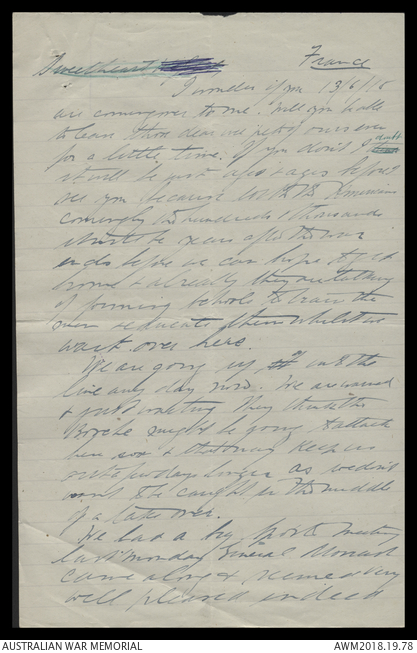 Sweetheart France
I wonder if you 13/6/18
are coming over to me. Will you be able
to leave those dear wee pets of ours even
for a little time. If you don't I doubt
it will be just ages & ages before I
see you because with the Americans
coming by the hundreds & thousands
it must be years after the war
ends before we can hope to get
home & already they are talking
of forming schools to train the
men & educate them whilst we
wait over here.
We are going up into the
line any day now. We are warned
& just waiting. They think the
Boche might be going to attack
here soon & that may keep us
out a few days longer as we don't
want to be caught in the middle
of a take over.
We had a big sports meeting
last Monday General Monash
came along & seemed very
well pleased indeed
AUSTRALIAN WAR MEMORIAL AWM2018.19.78